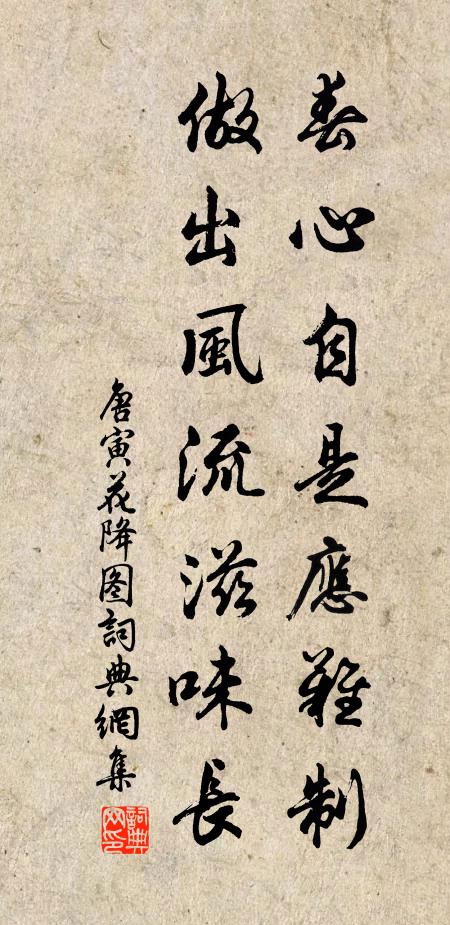 春心自是應難制
做出風流滋味長
唐寅花降图詞典網集
詞典網印